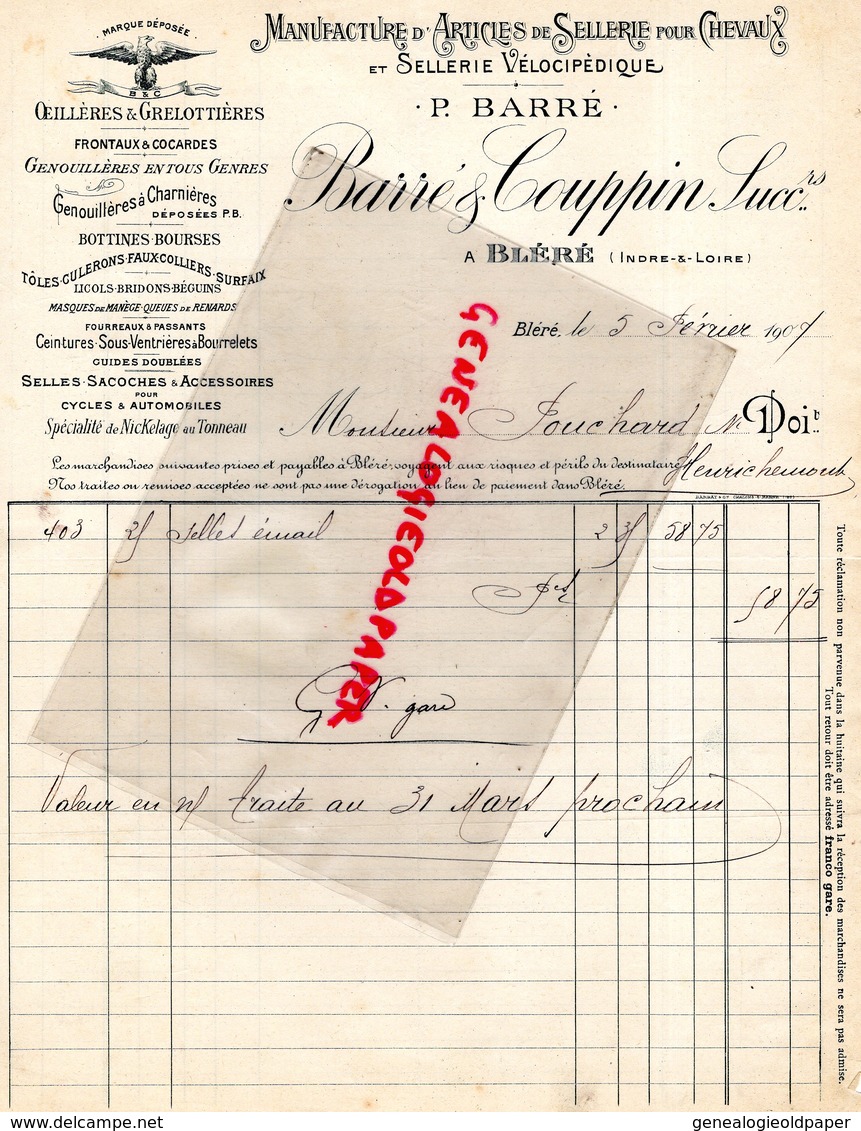 MARQUE DÉPOSÉE
B & C
ŒILLÈRES & GRELOTTIÈRES
FRONTAUX & COCARDES
GENOUILLÈRES EN TOUS GENRES
Genouillères à Charnières
DÉPOSÉES P.B.
BOTTINES·BOURSES
TÔLES·CULERONS·FAUX-COLLIERS·SURFAIX
LICOLS·BRIDONS·BÉGUINS
MASQUES DE MANÈGE·QUEUES DE RENARDS
FOURREAUX & PASSANTS
Ceintures·Sous-Ventrières à Bourrelets
GUIDES DOUBLÉES
SELLES·SACOCHES & ACCESSOIRES
POUR
CYCLES & AUTOMOBILES
Spécialité de Nickelage au Tonneau
MANUFACTURE D'ARTICLES DE SELLERIE POUR CHEVAUX
ET SELLERIE VÉLOCIPÈDIQUE
· P. BARRÉ ·
Barré & Couppin Succ.rs
A BLÉRÉ (INDRE-&-LOIRE)
Bléré, le 5 Février 1907
Monsieur Fouchard Doit
Henrichemont
Les marchandises suivantes prises et payables à Bléré, voyagent aux risques et périls du destinataire.
Nos traites ou remises acceptées ne sont pas une dérogation au lien de paiement dans Bléré.
403 25 selles émail 2 35 58 75
58 75
G. V. gare
Valeur en n/ traite au 31 Mars prochain
Toute réclamation non parvenue dans la huitaine qui suivra la réception des marchandises ne sera pas admise.
Tout retour doit être adressé franco gare.
GENEALOGIEOLDPAPER
www.delcampe.net
genealogieoldpaper